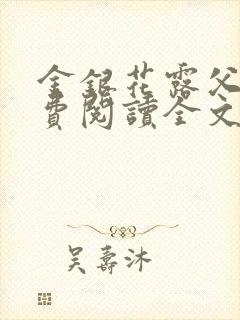 金銀花露父
費閱讀全文
吴壽沐